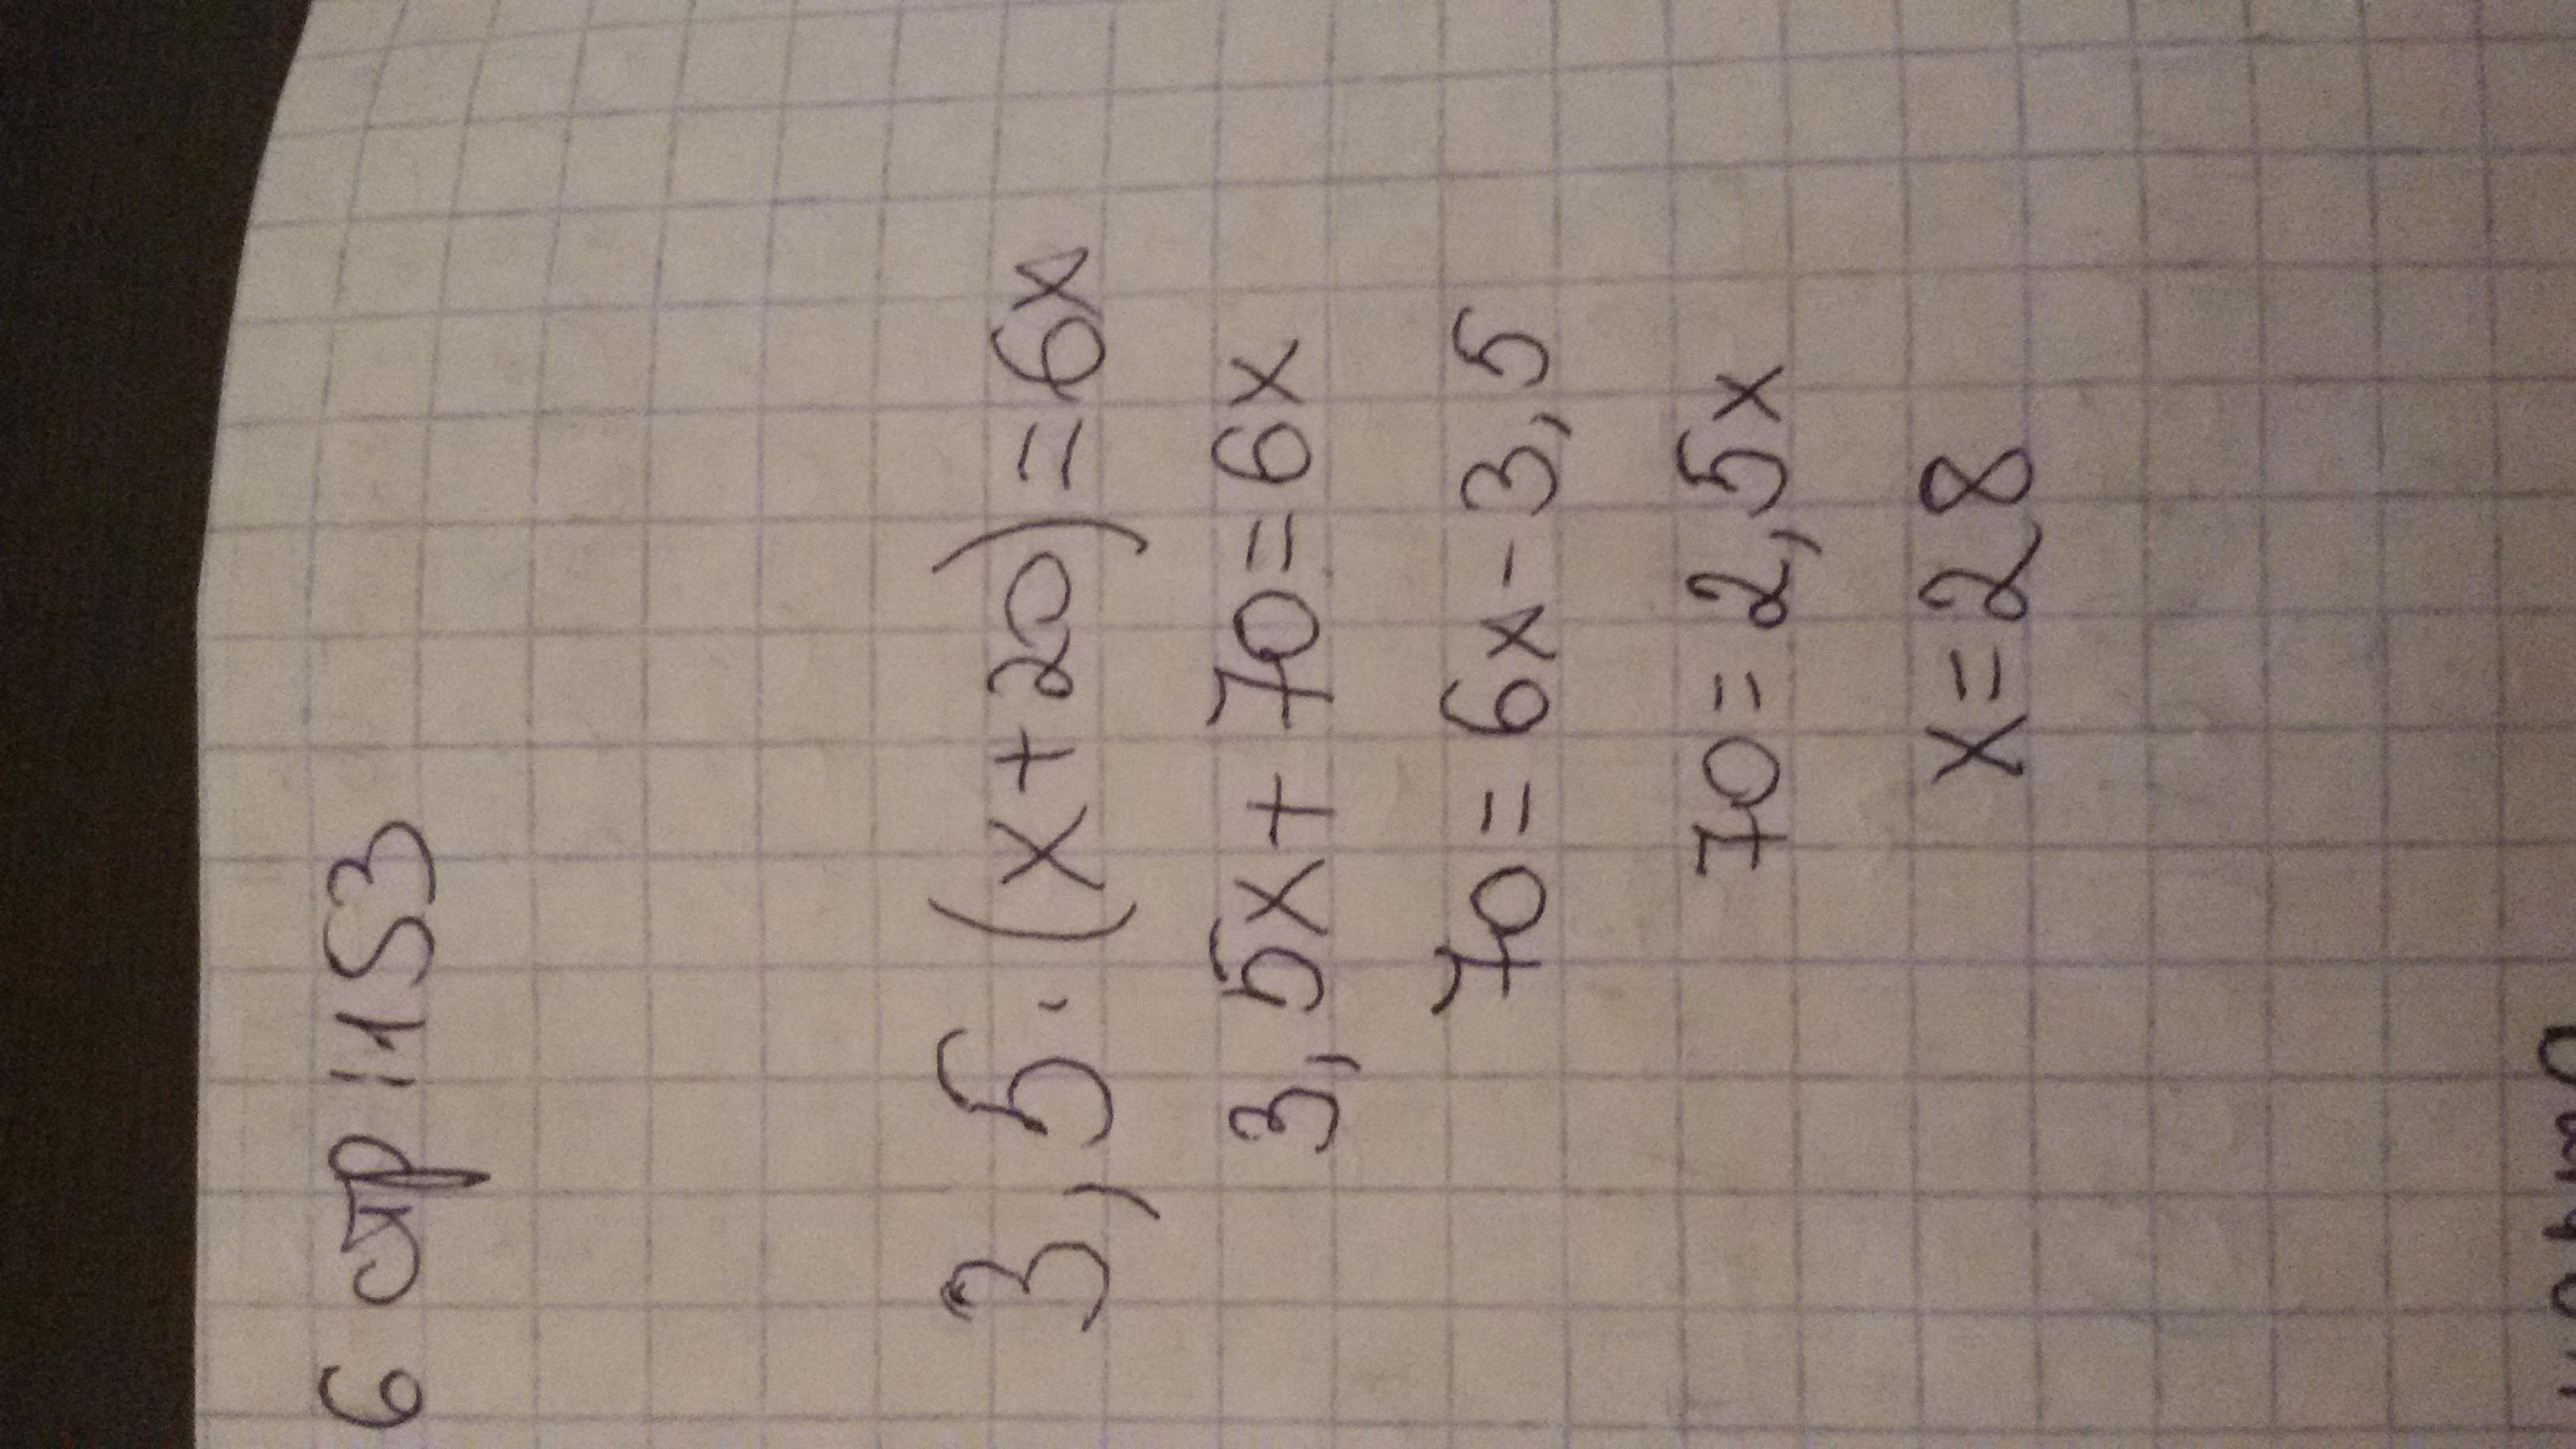 6 стр 153
3,5·(x+20)=6x
3,5x+70=6x
70=6x-3,5
70=2,5x
x=28